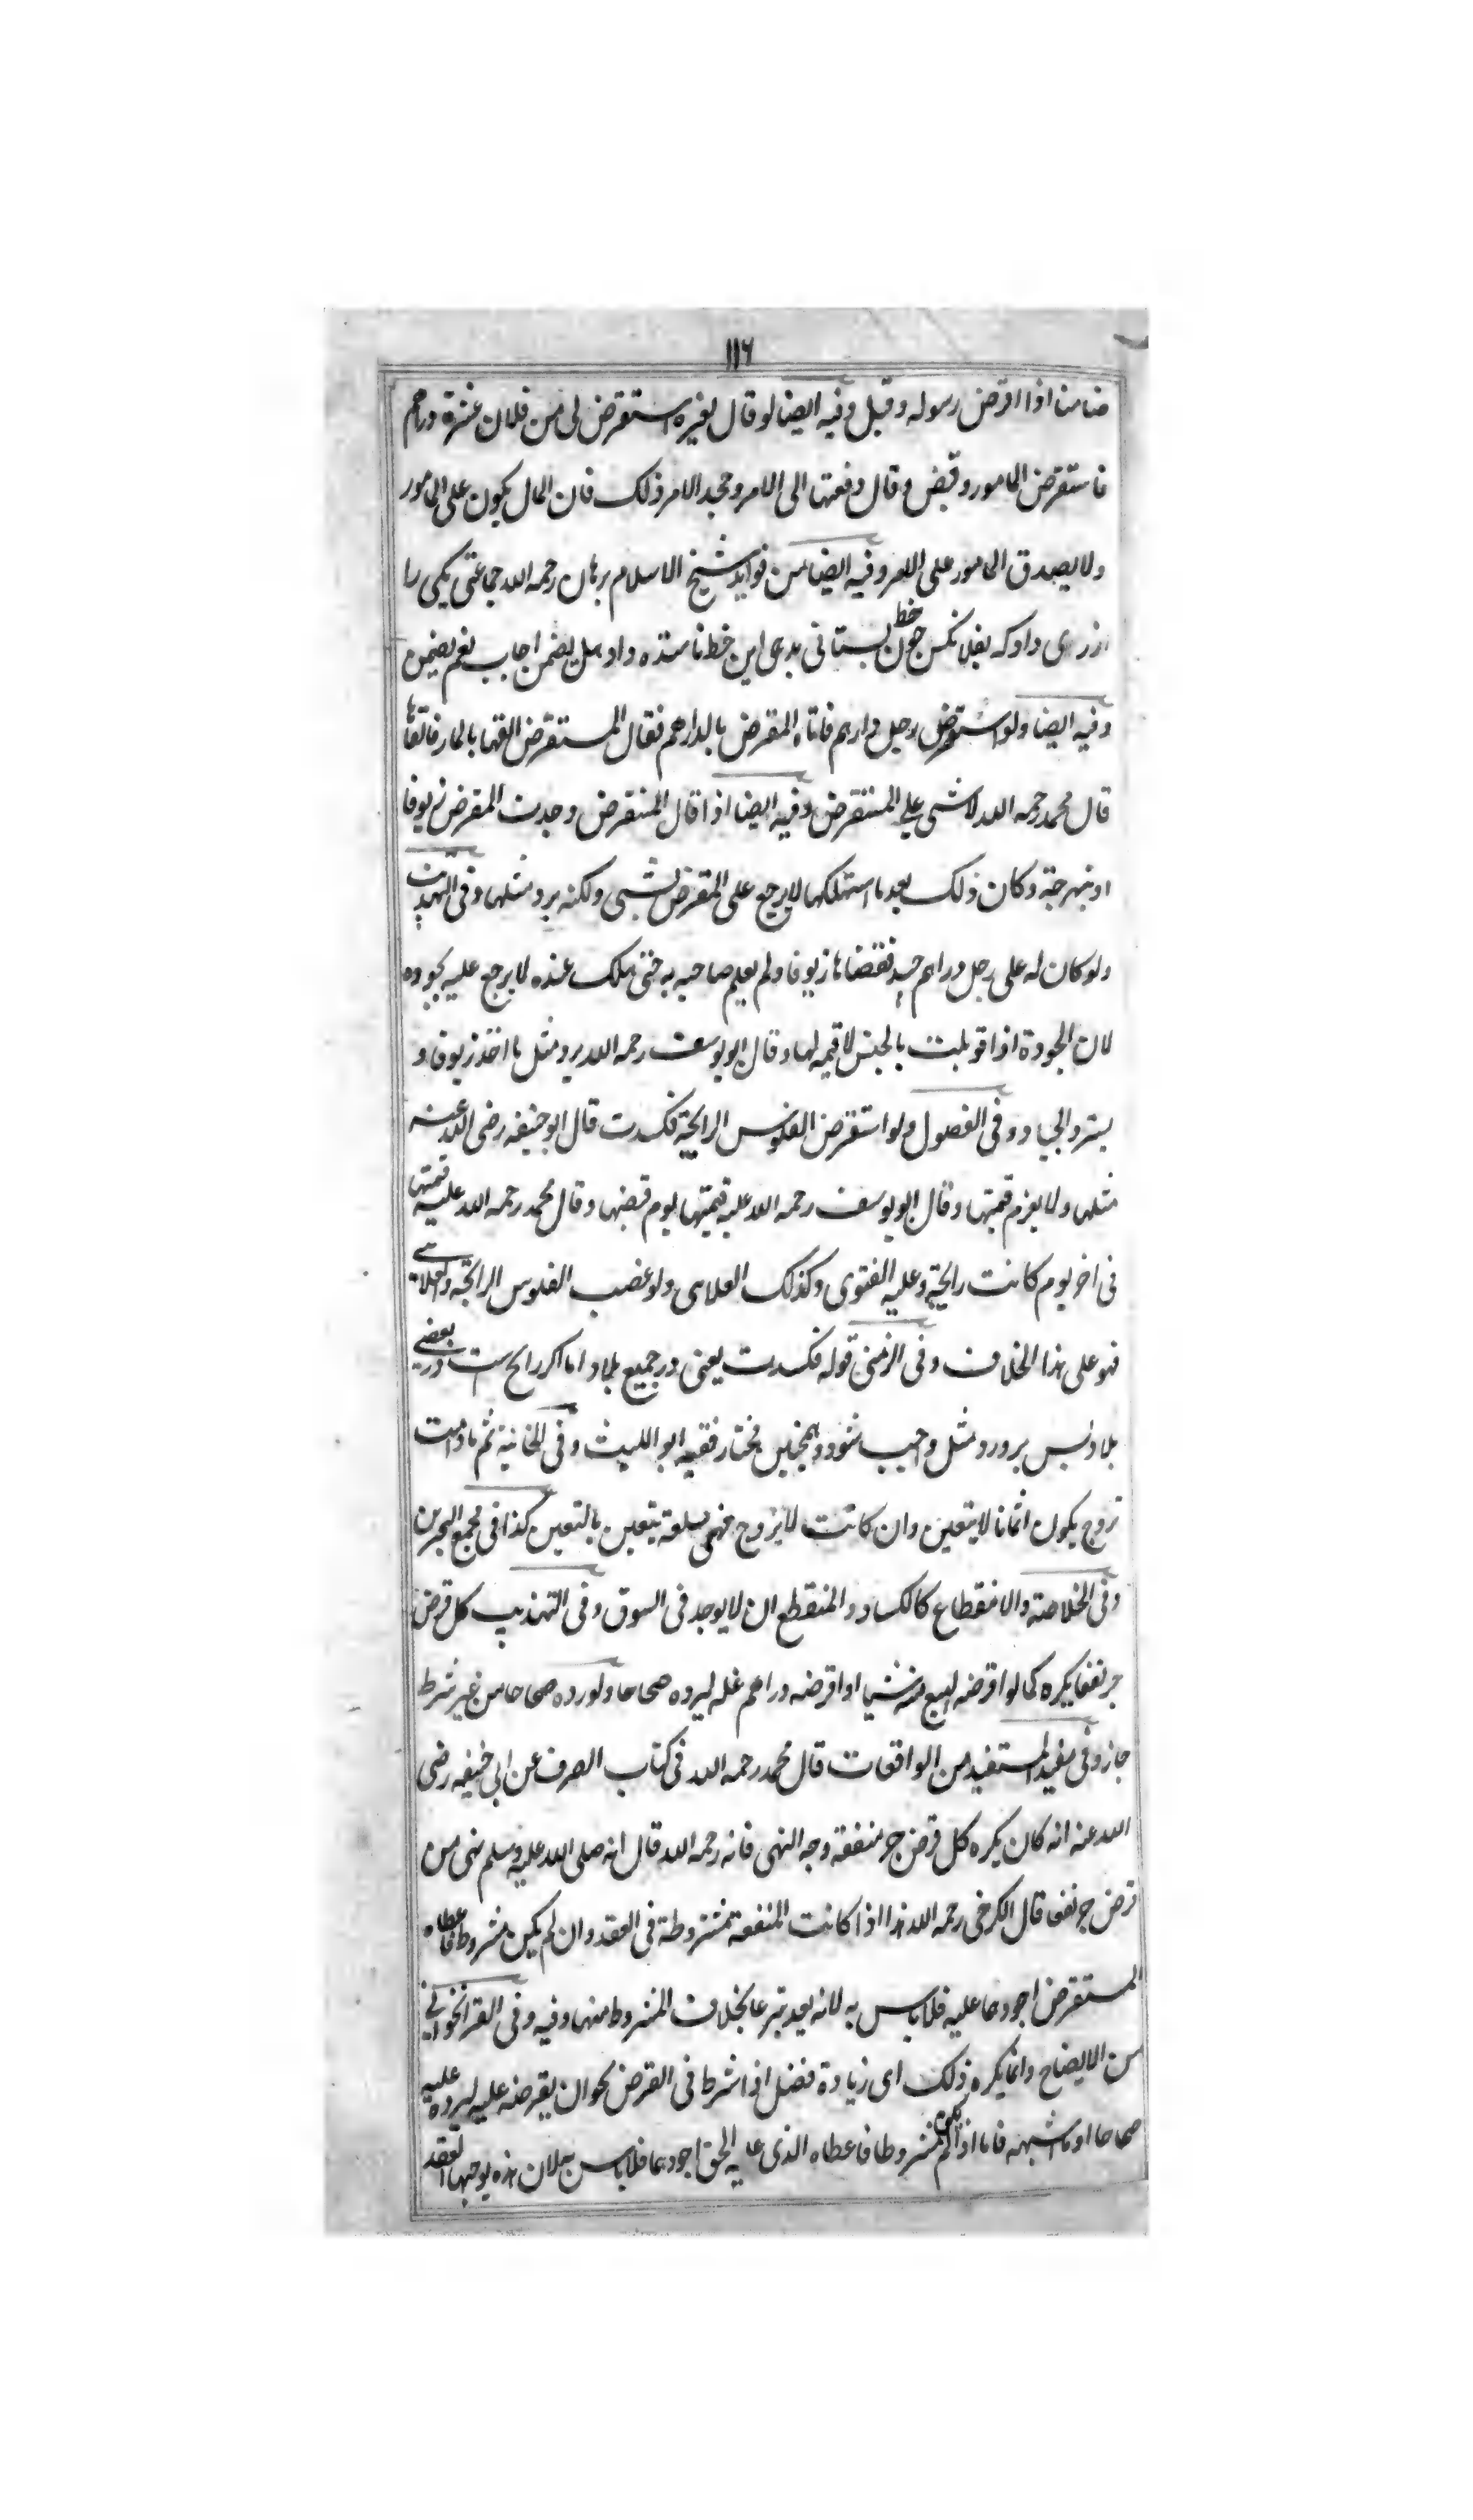 ١١٦
ضامنا اذا اقرض رسوله وقبل وفيه ايضا لو قال لغيره استقرض لى من فلان عشرة دراهم
فاستقرض المامور وقبض وقال دفعتها الى الامر وجحد الامر ذلك فان المال يكون على المامور
ولا يصدق المامور على الامر وفيه ايضا من فوايد شيخ الاسلام برهان رحمه الله جماعتى يكى را
زرى داد كه بفلانكس چون خط بستانى بدهى اين خط ناستده داد هل يضمن اجاب نعم يضمن
وفيه ايضا ولو استقرض رجل دراهم فاتاه المقرض بالدراهم فقال المستقرض القها بالماء فالقاها
قال محمد رحمه الله لا شى على المستقرض وفيه ايضا اذا قال المستقرض وجدت المقرض زيوفا
او نبهرجة وكان ذلك بعد ما استهلكها لا يرجع على المقرض بشى ولكنه يرد مثلها وفى التهذيب
ولو كان له على رجل دراهم جيد فقضاها زيوفا ولم يعلم صاحبه به حتى هلك عنده لا يرجع عليه بجوده
لان الجودة اذا قوبلت بالجنس لا قيمه لها وقال ابو يوسف رحمه الله يرد مثل ما اخذ زيوفا و
يسترد الجياد وفى الفصول ولو استقرض الفلوس الرايجة فكسدت قال ابو حنيفه رضى الله عنه
مثلها ولا يغرم قيمتها وقال ابو يوسف رحمه الله عليه قيمتها يوم قبضها وقال محمد رحمه الله عليه قيمتها
فى اخر يوم كانت رايجة وعليه الفتوى وكذلك العدالى ولو غصب الفلوس الرايجة والعدالى
فهو على هذا الخلاف وفى الزمنى قوله فكسدت يعنى در جميع بلاد اما اكر رايح است در بعضى
بلاد پس برو رد مثل واجب شود وهمچنين مختار فقيه ابو الليث وفى الخانية ثم ما دامت
تروج يكون اثمانا لا يتعين وان كانت لا تروج فهى سلعة يتعين بالتعين كذا فى مجمع البحرين
وفى الخلاصة والانقطاع كالكساد والمنقطع ان لا يوجد فى السوق وفى التهذيب كل قرض
جر نفعا يكره كما لو اقرضه ليبيع منه شيا او اقرضه دراهم غله ليرده صحاحا ولو رده صحاحا من غير شرط
جاز وفى مفيد المستفيد من الواقعات قال محمد رحمه الله فى كتاب الصرف عن ابى حنيفه رضى
الله عنه انه كان يكره كل قرض جر منفعة وجه النهى فانه رحمه الله قال انه صلى الله عليه وسلم نهى من
قرض جر نفعا قال الكرخى رحمه الله هذا اذا كانت المنفعة مشروطة فى العقد وان لم يكن مشروطا فاعطاه
المستقرض اجود مما عليه فلا باس به لانه يعد تبرعا بخلاف المشروط منها وفيه وفى القراخوانى
من الايضاح وانما يكره ذلك اى زيادة فضل اذا شرط فى القرض نحو ان يقرضه عليه ليرده عليه
صحاحا او ما اشبهه فاما اذا لم يكن مشروطا فاعطاه الذى عليه الحق اجود مما فلا باس به لان هذه يوجبها العقد